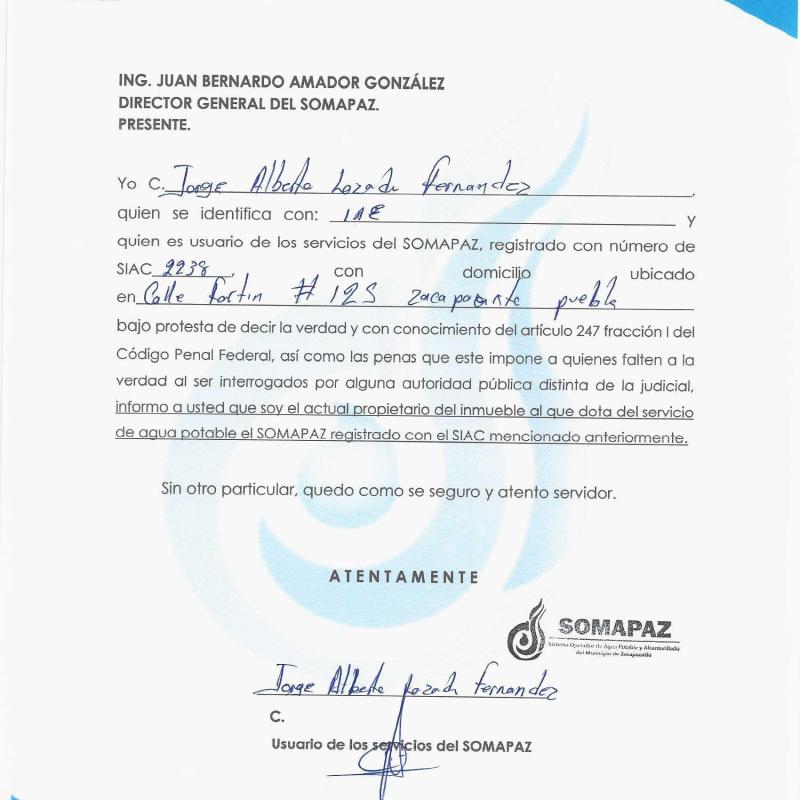 ING. JUAN BERNARDO AMADOR GONZÁLEZ
DIRECTOR GENERAL DEL SOMAPAZ.
PRESENTE.
Yo C. Jorge Alberto Lozada Fernandez,
quien se identifica con: INE y
quien es usuario de los servicios del SOMAPAZ, registrado con número de
SIAC 2238, con domicilio ubicado
en Calle Fortin # 125 zacapoaxtla puebla
bajo protesta de decir la verdad y con conocimiento del artículo 247 fracción I del
Código Penal Federal, así como las penas que este impone a quienes falten a la
verdad al ser interrogados por alguna autoridad pública distinta de la judicial,
informo a usted que soy el actual propietario del inmueble al que dota del servicio
de agua potable el SOMAPAZ registrado con el SIAC mencionado anteriormente.
Sin otro particular, quedo como se seguro y atento servidor.
ATENTAMENTE
SOMAPAZ
Sistema Operador de Agua Potable y Alcantarillado
del Municipio de Zacapoaxtla
Jorge Alberto Lozada Fernandez
C.
Usuario de los servicios del SOMAPAZ